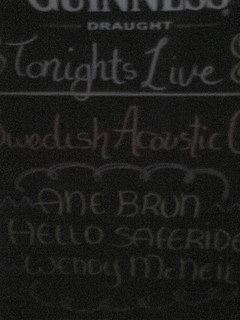 GUINNESS
DRAUGHT
Tonights Live
Swedish Acoustic
ANE BRUN
HELLO SAFERIDE
WENDY McNEIL